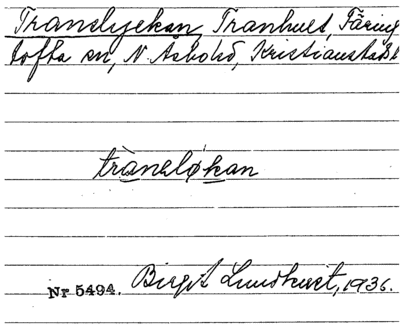 Tranelyckan, Tranhult, Färing
tofta sn, N. Åsbohd, Kristianstads l
tranelǿkan
Nr 5494. Birgit Lundkvist, 1936.